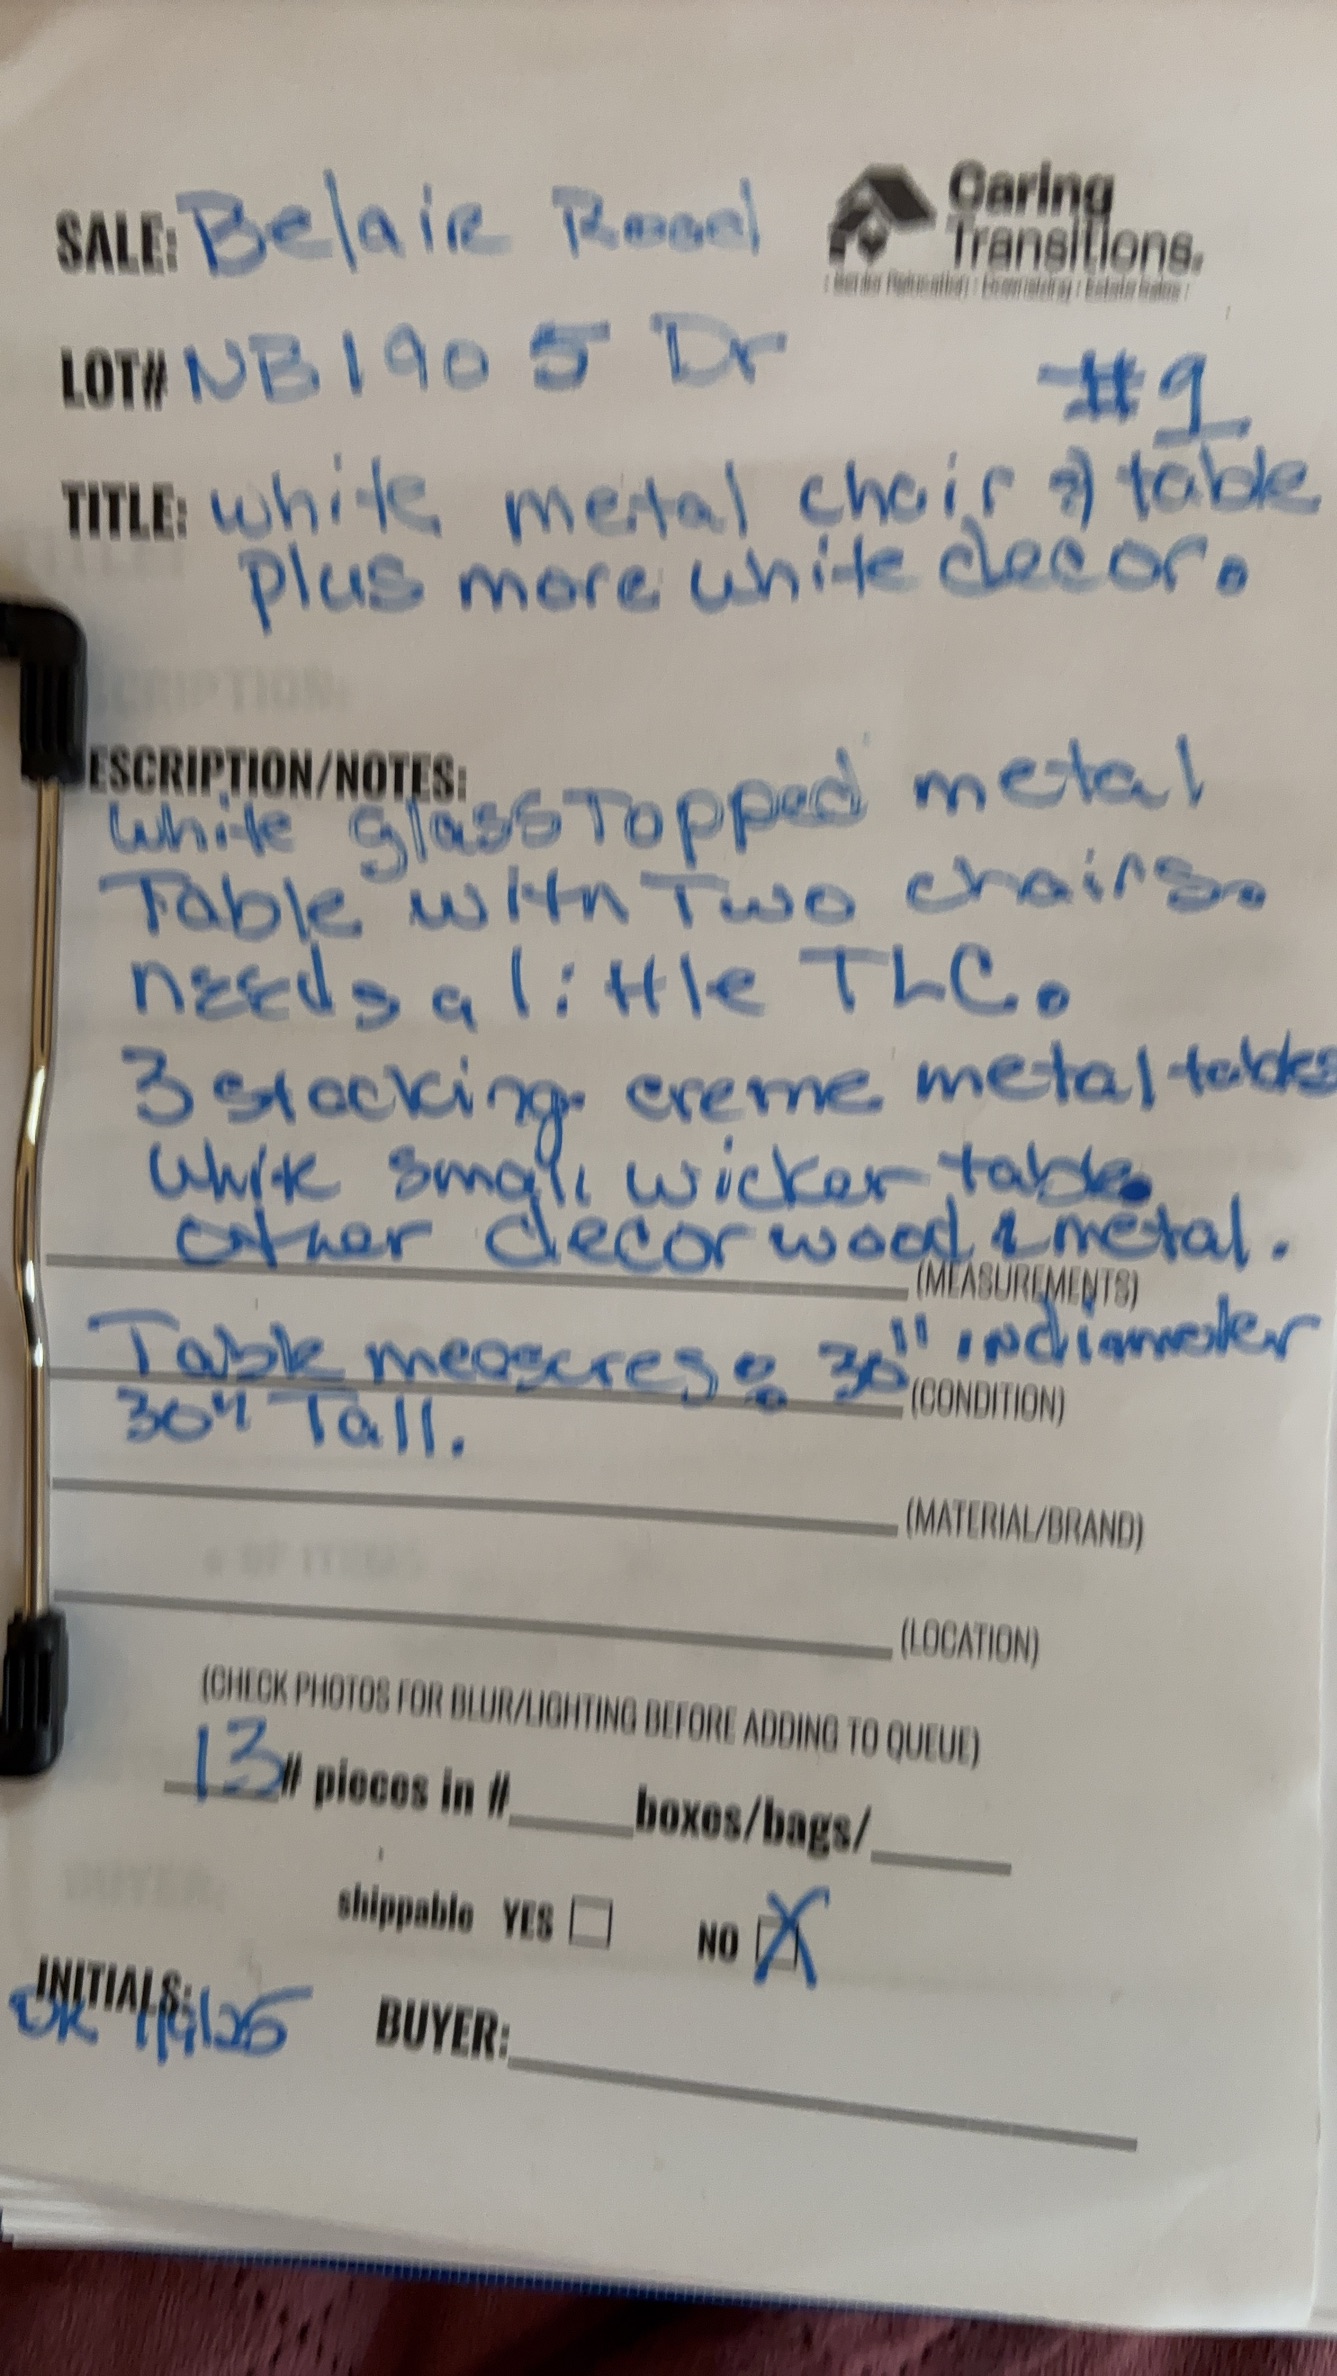 SALE: Belair Road
Caring
Transitions.
LOT# NB1905 Dr
#1
TITLE: white metal chair & table
plus more white decor.
ESCRIPTION/NOTES:
white glass Topped metal
Table with Two chairs.
needs a little TLC.
3 stacking creme metal tables
white small wicker table.
other decor wood & metal.
(MEASUREMENTS)
Table measures: 30" in diameter
(CONDITION)
30" Tall.
(MATERIAL/BRAND)
(LOCATION)
(CHECK PHOTOS FOR BLUR/LIGHTING BEFORE ADDING TO QUEUE)
13 # pieces in #____ boxes/bags/____
shippable YES NO X
INITIALS:
BUYER: